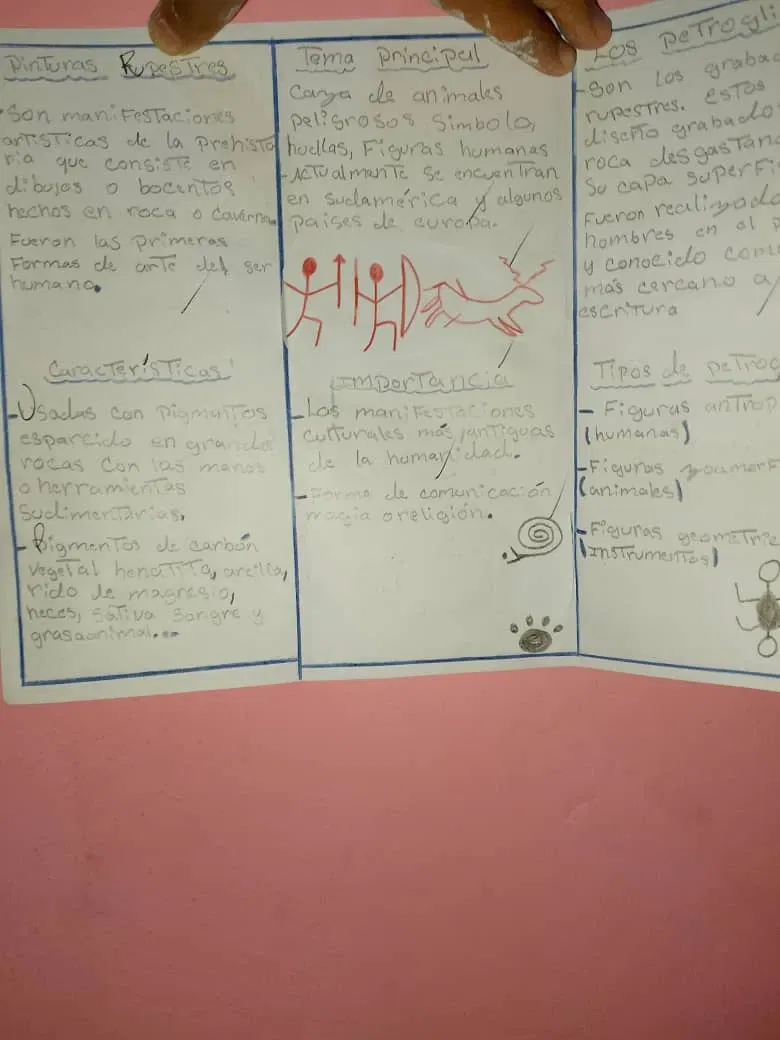 Pinturas Rupestres
Son manifestaciones
artísticas de la prehisto
ria que consiste en
dibujos o bocentos
hechos en roca o caverna.
Fueron las primeras
Formas de arte del ser
humano.
Características
-Usadas con pigmuntos
esparcido en grandes
rocas con las manos
o herramientas
sudimentarias.
-Pigmentos de carbón
vegetal henatita, arcilla,
rido de magresio,
heces, sativa sangre y
grasa animal.
Tema principal
Caza de animales
peligrosos simbolo,
huellas, Figuras humanas
-Actualmante se encuentran
en sudamérica y algunos
paises de europa.
Importancia
-Las manifestaciones
culturales más antiguas
de la humanidad.
-Forma de comunicación
magia o religión.
Los petrogli
-Son los grabad
rupestres. estos
diseño grabado
roca desgastan
Su capa superfi
Fueron realizado
hombres en el p
y conocido com
más cercano a
escritura
Tipos de petrog
- Figuras antrop
(humanas)
-Figuras zoumorf
(animales)
-Figuras geometric
(Instrumentos)